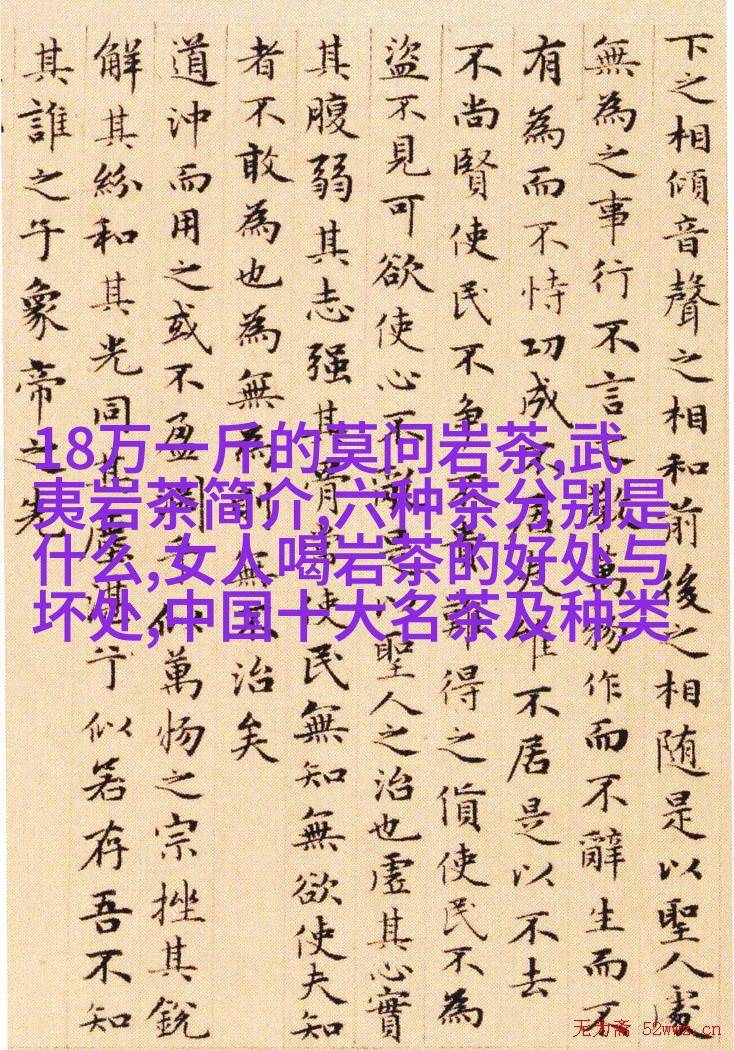 下之相傾音聲之相和前後之相随是以聖人處
無為之事行不言之教萬物作而不辭生而不
有為而不恃功成不居夫唯不居是以不去
不尚賢使民不争不貴難得之貨使民不為
盜不見可欲使心不是以聖人之治也虛其心實
其腹弱其志强其骨常使民無知無欲使夫知
者不敢為也為無為則無不治矣
道沖而用之或不盈淵乎似萬物之宗挫其銳
解其紛和其光同其塵湛兮似若存吾不知
其誰之子象帝之先
18万一斤的莫问岩茶,武
夷岩茶简介,六种茶分别是
什么,女人喝岩茶的好处与
坏处,中国十大名茶及种类
无为斋 52wwz.cn